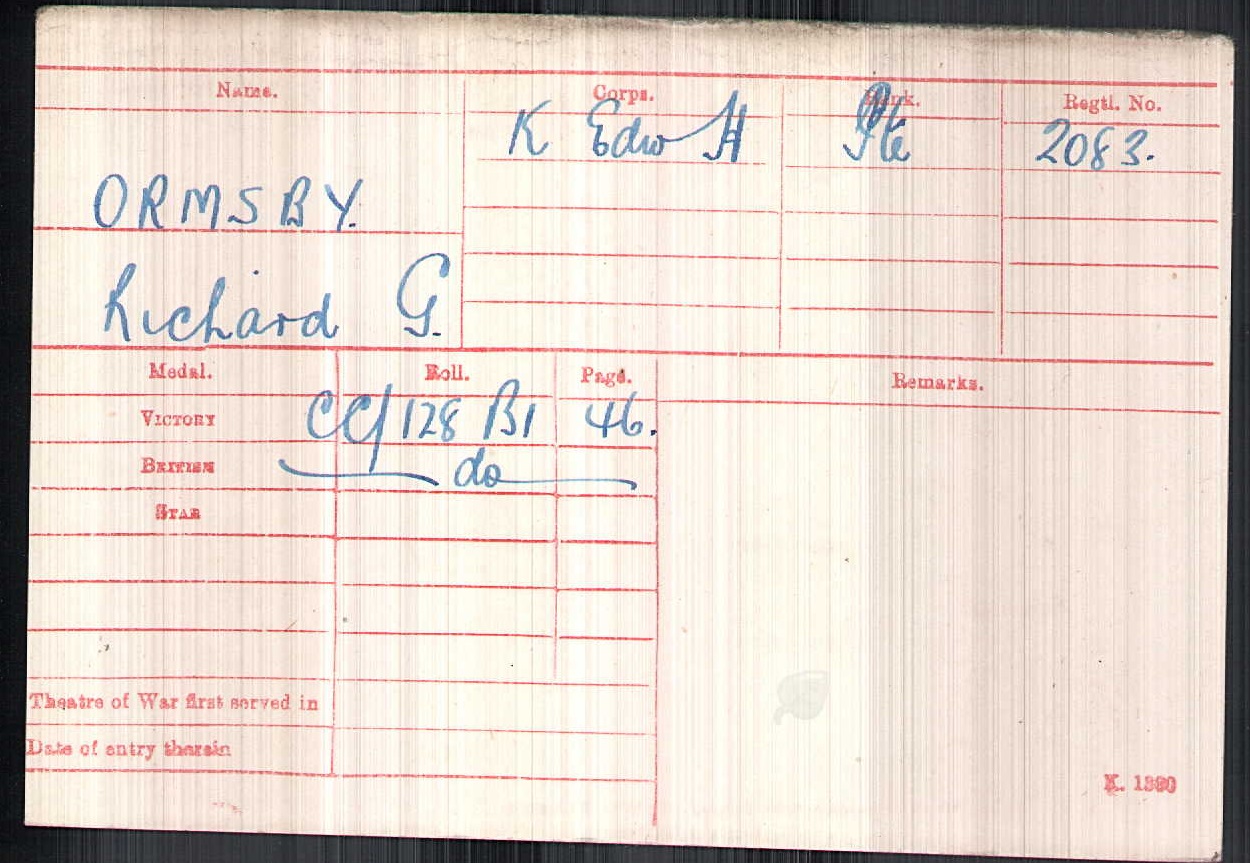 Name. Corps. Rank. Regtl. No.
K Edw H Pte 2083.
ORMSBY.
Richard G.
Medal. Roll. Page. Remarks.
VICTORY CC/128 B1 46.
BRITISH do
STAR
Theatre of War first served in
Date of entry therein
K. 1380